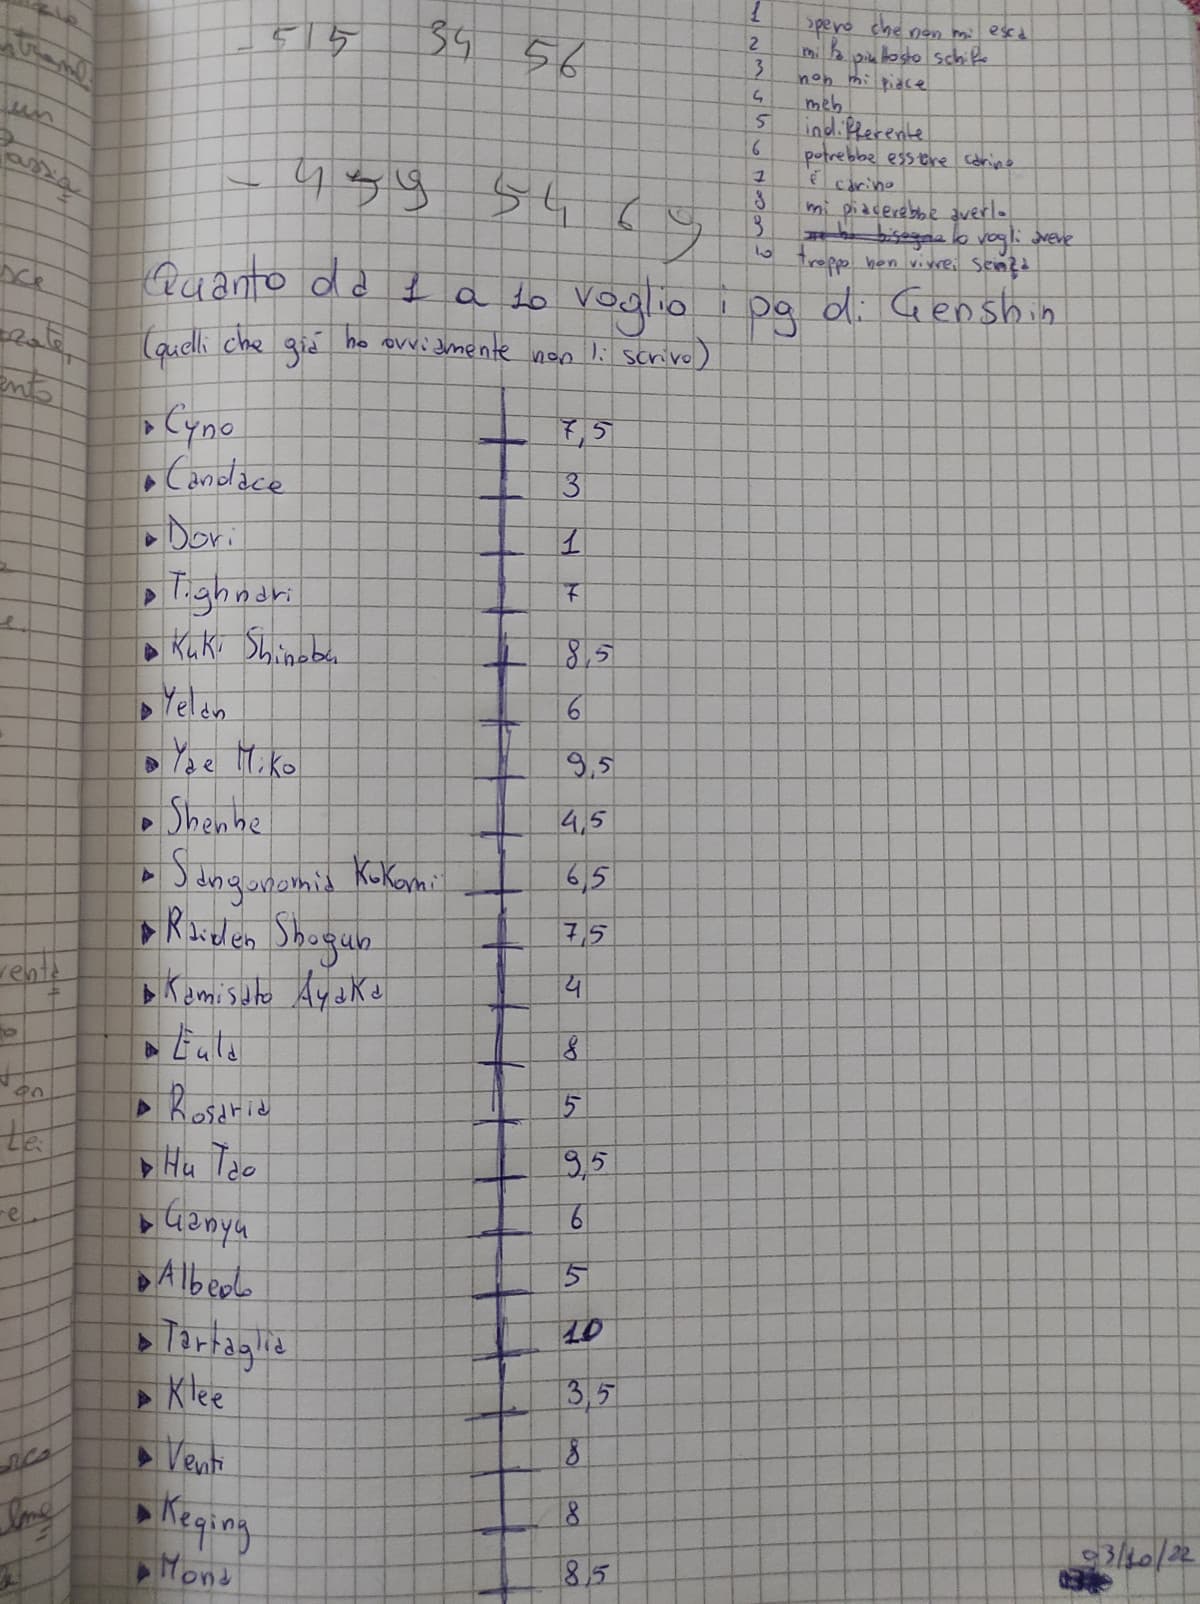 - 515 34 56
- 459 54 69
1 spero che non mi esca
2 mi fa piuttosto schifo
3 non mi piace
4 meh
5 indifferente
6 potrebbe essere carino
7 è carino
8 mi piacerebbe averlo
9 lo vogli avere
10 troppo non vivrei senza
Quanto da 1 a 10 voglio i pg di Genshin
(quelli che già ho ovviamente non li scrivo)
Cyno 7,5
Candace 3
Dori 1
Tighnari 7
Kuki Shinobu 8,5
Yelan 6
Yae Miko 9,5
Shenhe 4,5
Sangonomia Kokomi 6,5
Raiden Shogun 7,5
Kamisato Ayaka 4
Eula 8
Rosaria 5
Hu Tao 9,5
Ganyu 6
Albedo 5
Tartaglia 10
Klee 3,5
Venti 8
Keqing 8
Mona 8,5
/10/22